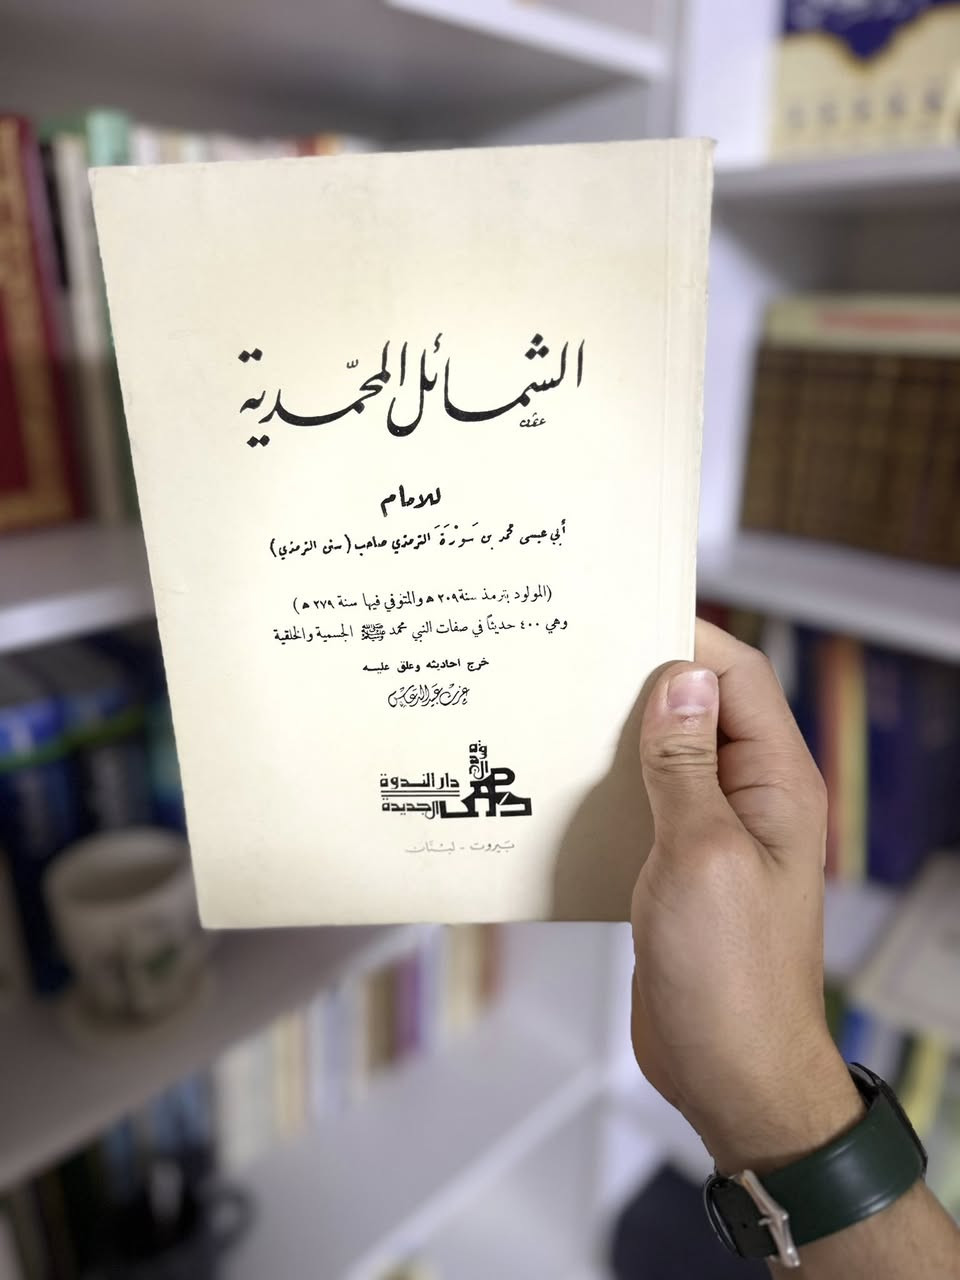 الشمائل المحمدية
للامام
أبي عيسى محمد بن سَوْرَةَ الترمذي صاحب (سنن الترمذي)
(المولود بترمذ سنة ٢٠٩ ھ والمتوفي فيها سنة ٢٧٩ ھ)
وهي ٤٠٠ حديثاً في صفات النبي محمد ﷺ الجسمية والخلقية
خرج احاديثه وعلق عليه
عزت عبيد الدعاس
دار الندوة
الجديدة
بيروت - لبنان